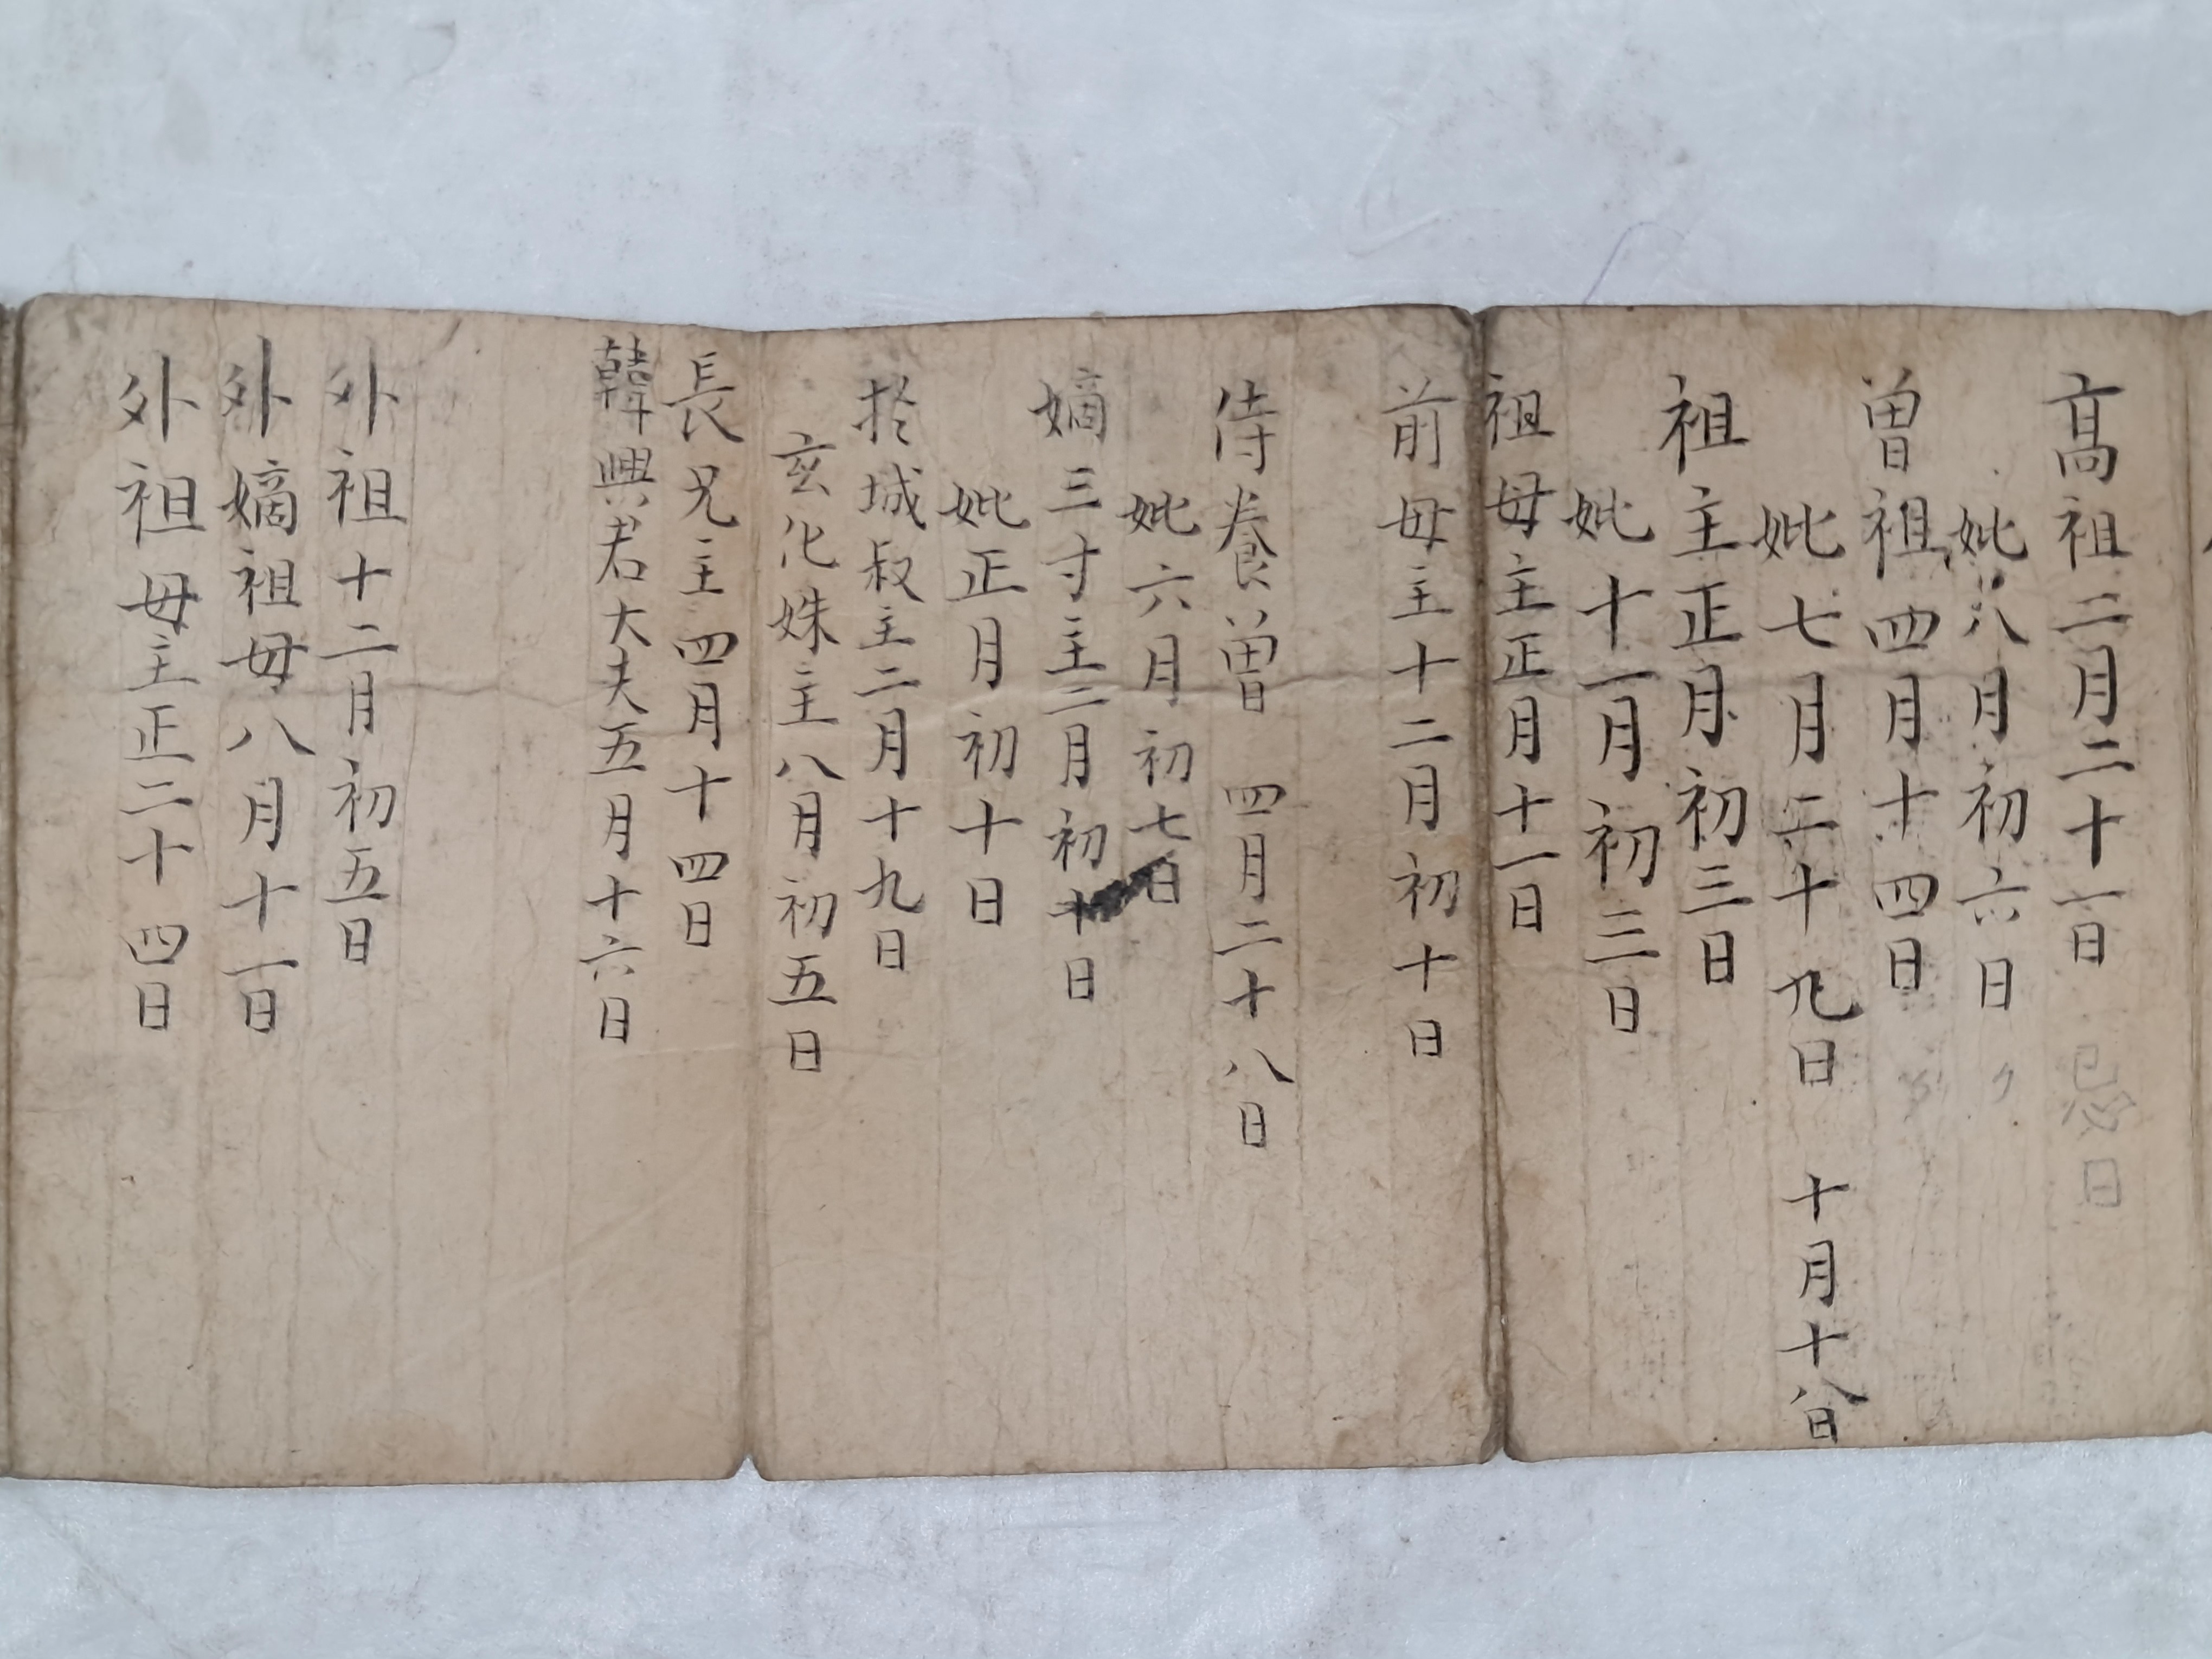 高祖二月二十一日 忌日
妣八月初六日 〃
曾祖四月十四日 〃
妣七月二十九日 十月十八日
祖主正月初三日
妣十一月初三日
祖母主正月十一日
前母主十二月初十日
侍養曾 四月二十八日
妣六月初七日
嫡三寸主二月初十日
妣正月初十日
城叔主二月十九日
玄化姝主八月初五日
長兄主四月十四日
韓興君大夫五月十六日
外祖十二月初五日
外嫡祖母八月十一日
外祖母主正二十四日